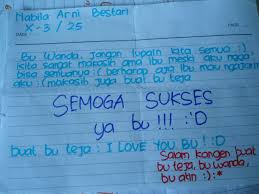 Nabila Arni Bestari
X-3 / 25
DATE:
Bu Wanda, jangan lupain kita semua :)
kita sangat makasih ama ibu meski aku ngga
bisa semuanya :( berharap aja ibu mau ngajarin
aku :( makasih juga buat bu teja
SEMOGA SUKSES
ya bu !!! :'D
buat bu teja : I LOVE YOU BU! :D
Salam kangen buat
bu teja, bu wanda,
bu atin :) :*